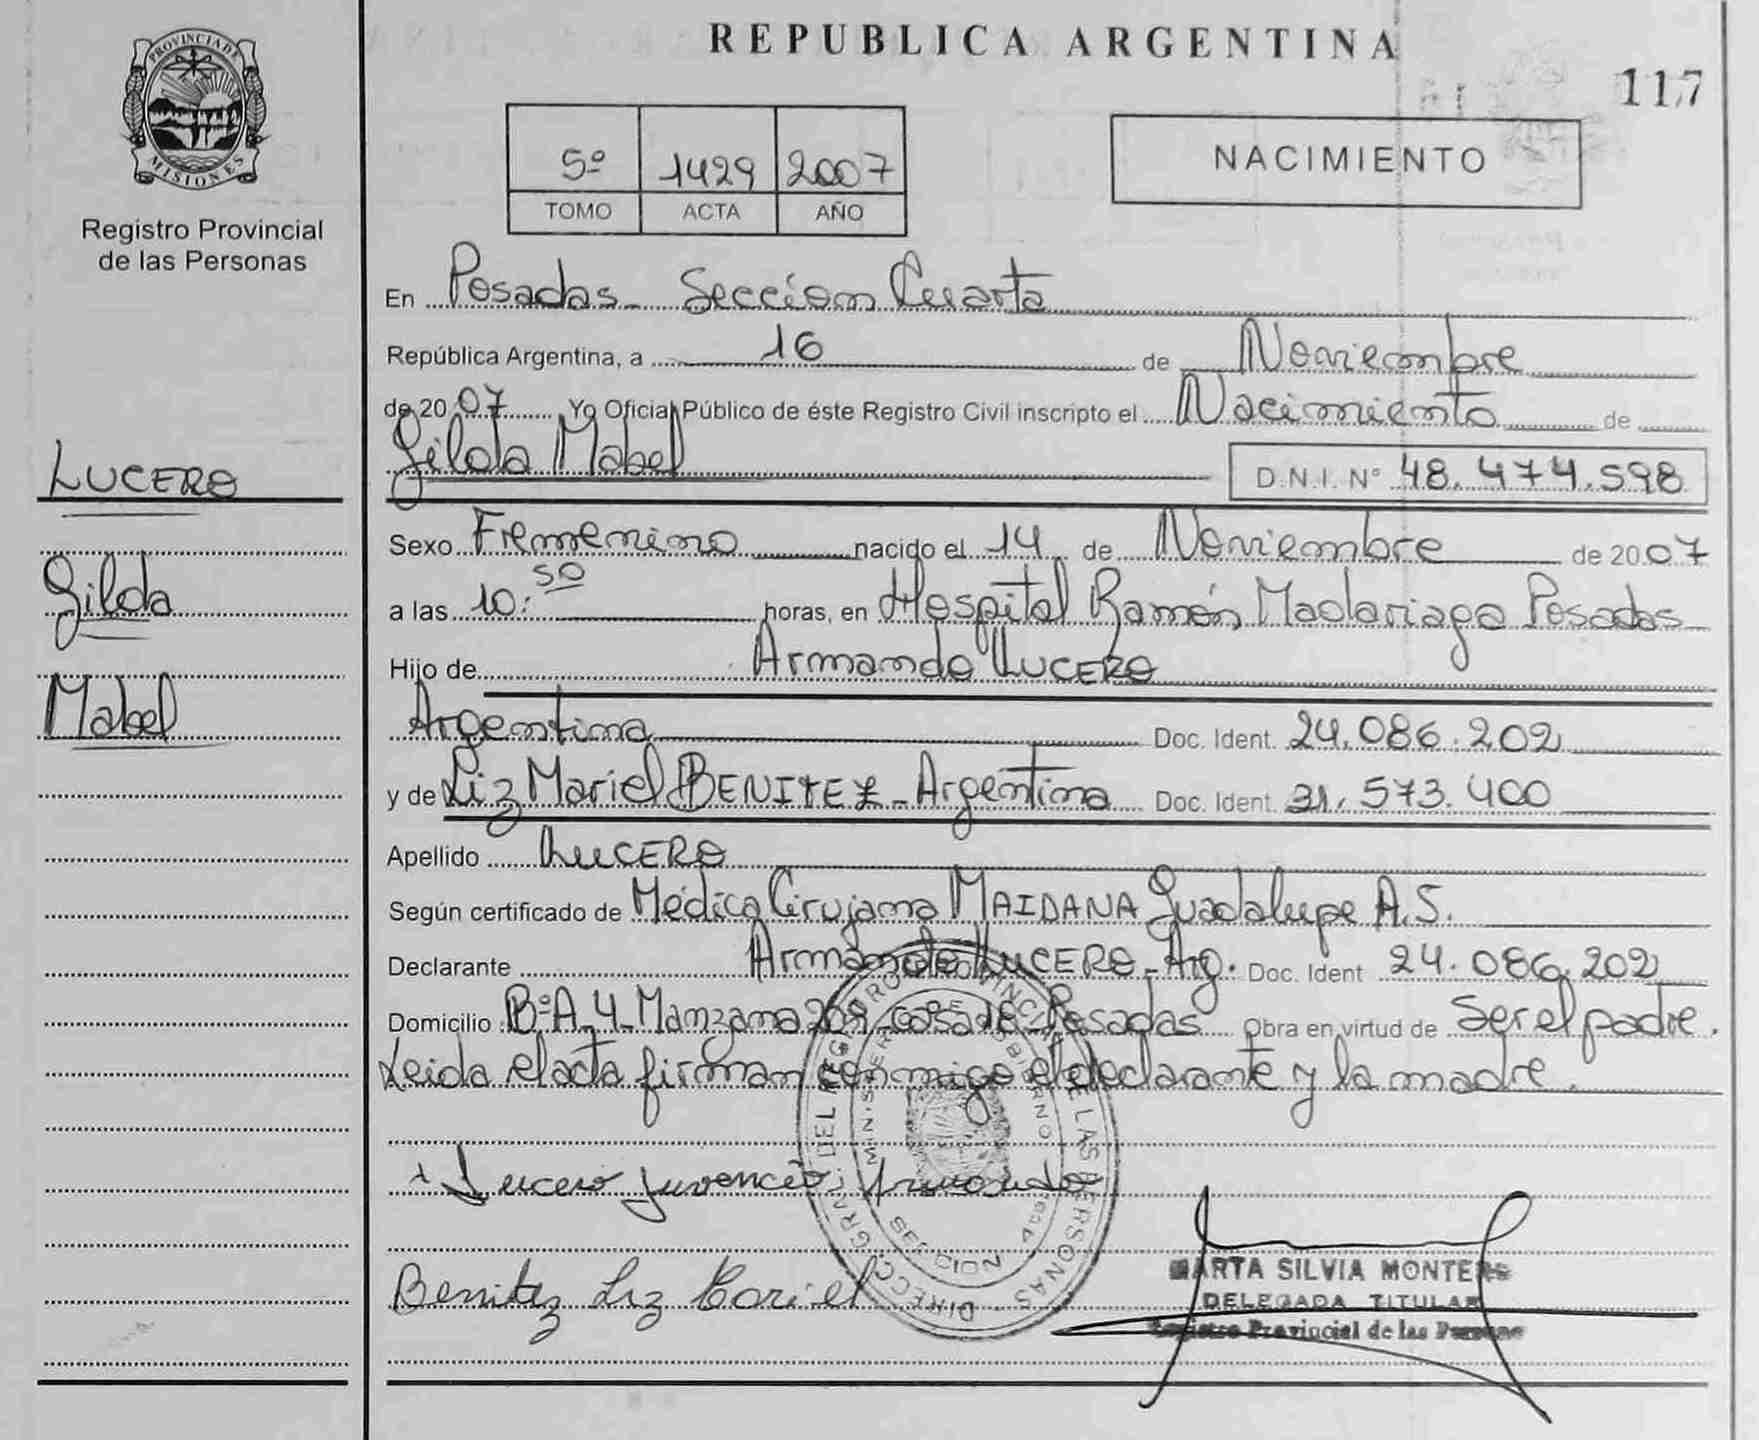 REPUBLICA ARGENTINA
117
PROVINCIA DE
MISIONES
Registro Provincial
de las Personas
5º 1429 2007
TOMO ACTA AÑO
NACIMIENTO
En Posadas - Sección Cuarta
República Argentina, a 16 de Noviembre
de 2007 Yo Oficial Público de éste Registro Civil inscripto el Nacimiento de
Gilda Mabel
D.N.I. Nº 48.474.598
LUCERO
Gilda
Mabel
Sexo Femenino nacido el 14 de Noviembre de 2007
a las 10:50 horas, en Hospital Ramón Madariaga Posadas
Hijo de Armando LUCERO
Argentina Doc. Ident. 24.086.202
y de Liz Mariel BENITEZ - Argentina Doc. Ident. 31.573.400
Apellido LUCERO
Según certificado de Médica Cirujana MAIDANA Guadalupe A.S.
Declarante Armando LUCERO - Arg. Doc. Ident 24.086.202
Domicilio Bº A-4 - Manzana 209 - casa 18 - Posadas Obra en virtud de Ser el padre.
Leida el acta firman conmigo el declarante y la madre.
Lucero Juvencio Armando
Benitez Liz Mariel
DIRECC. GRAL. DEL REGISTRO PROVINCIAL DE LAS PERSONAS
MINISTERIO DE GOBIERNO
SECCION
MARTA SILVIA MONTERO
DELEGADA TITULAR
Registro Provincial de las Personas